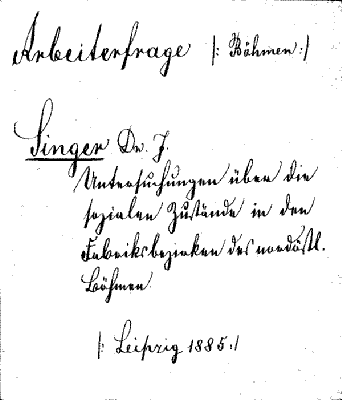 Arbeiterfrage |: Böhmen :|
Singer Dr. J.
Untersuchungen über die
sozialen Zustände in den
Fabriksbezirken des nordöstl.
Böhmen.
|: Leipzig 1885 :|